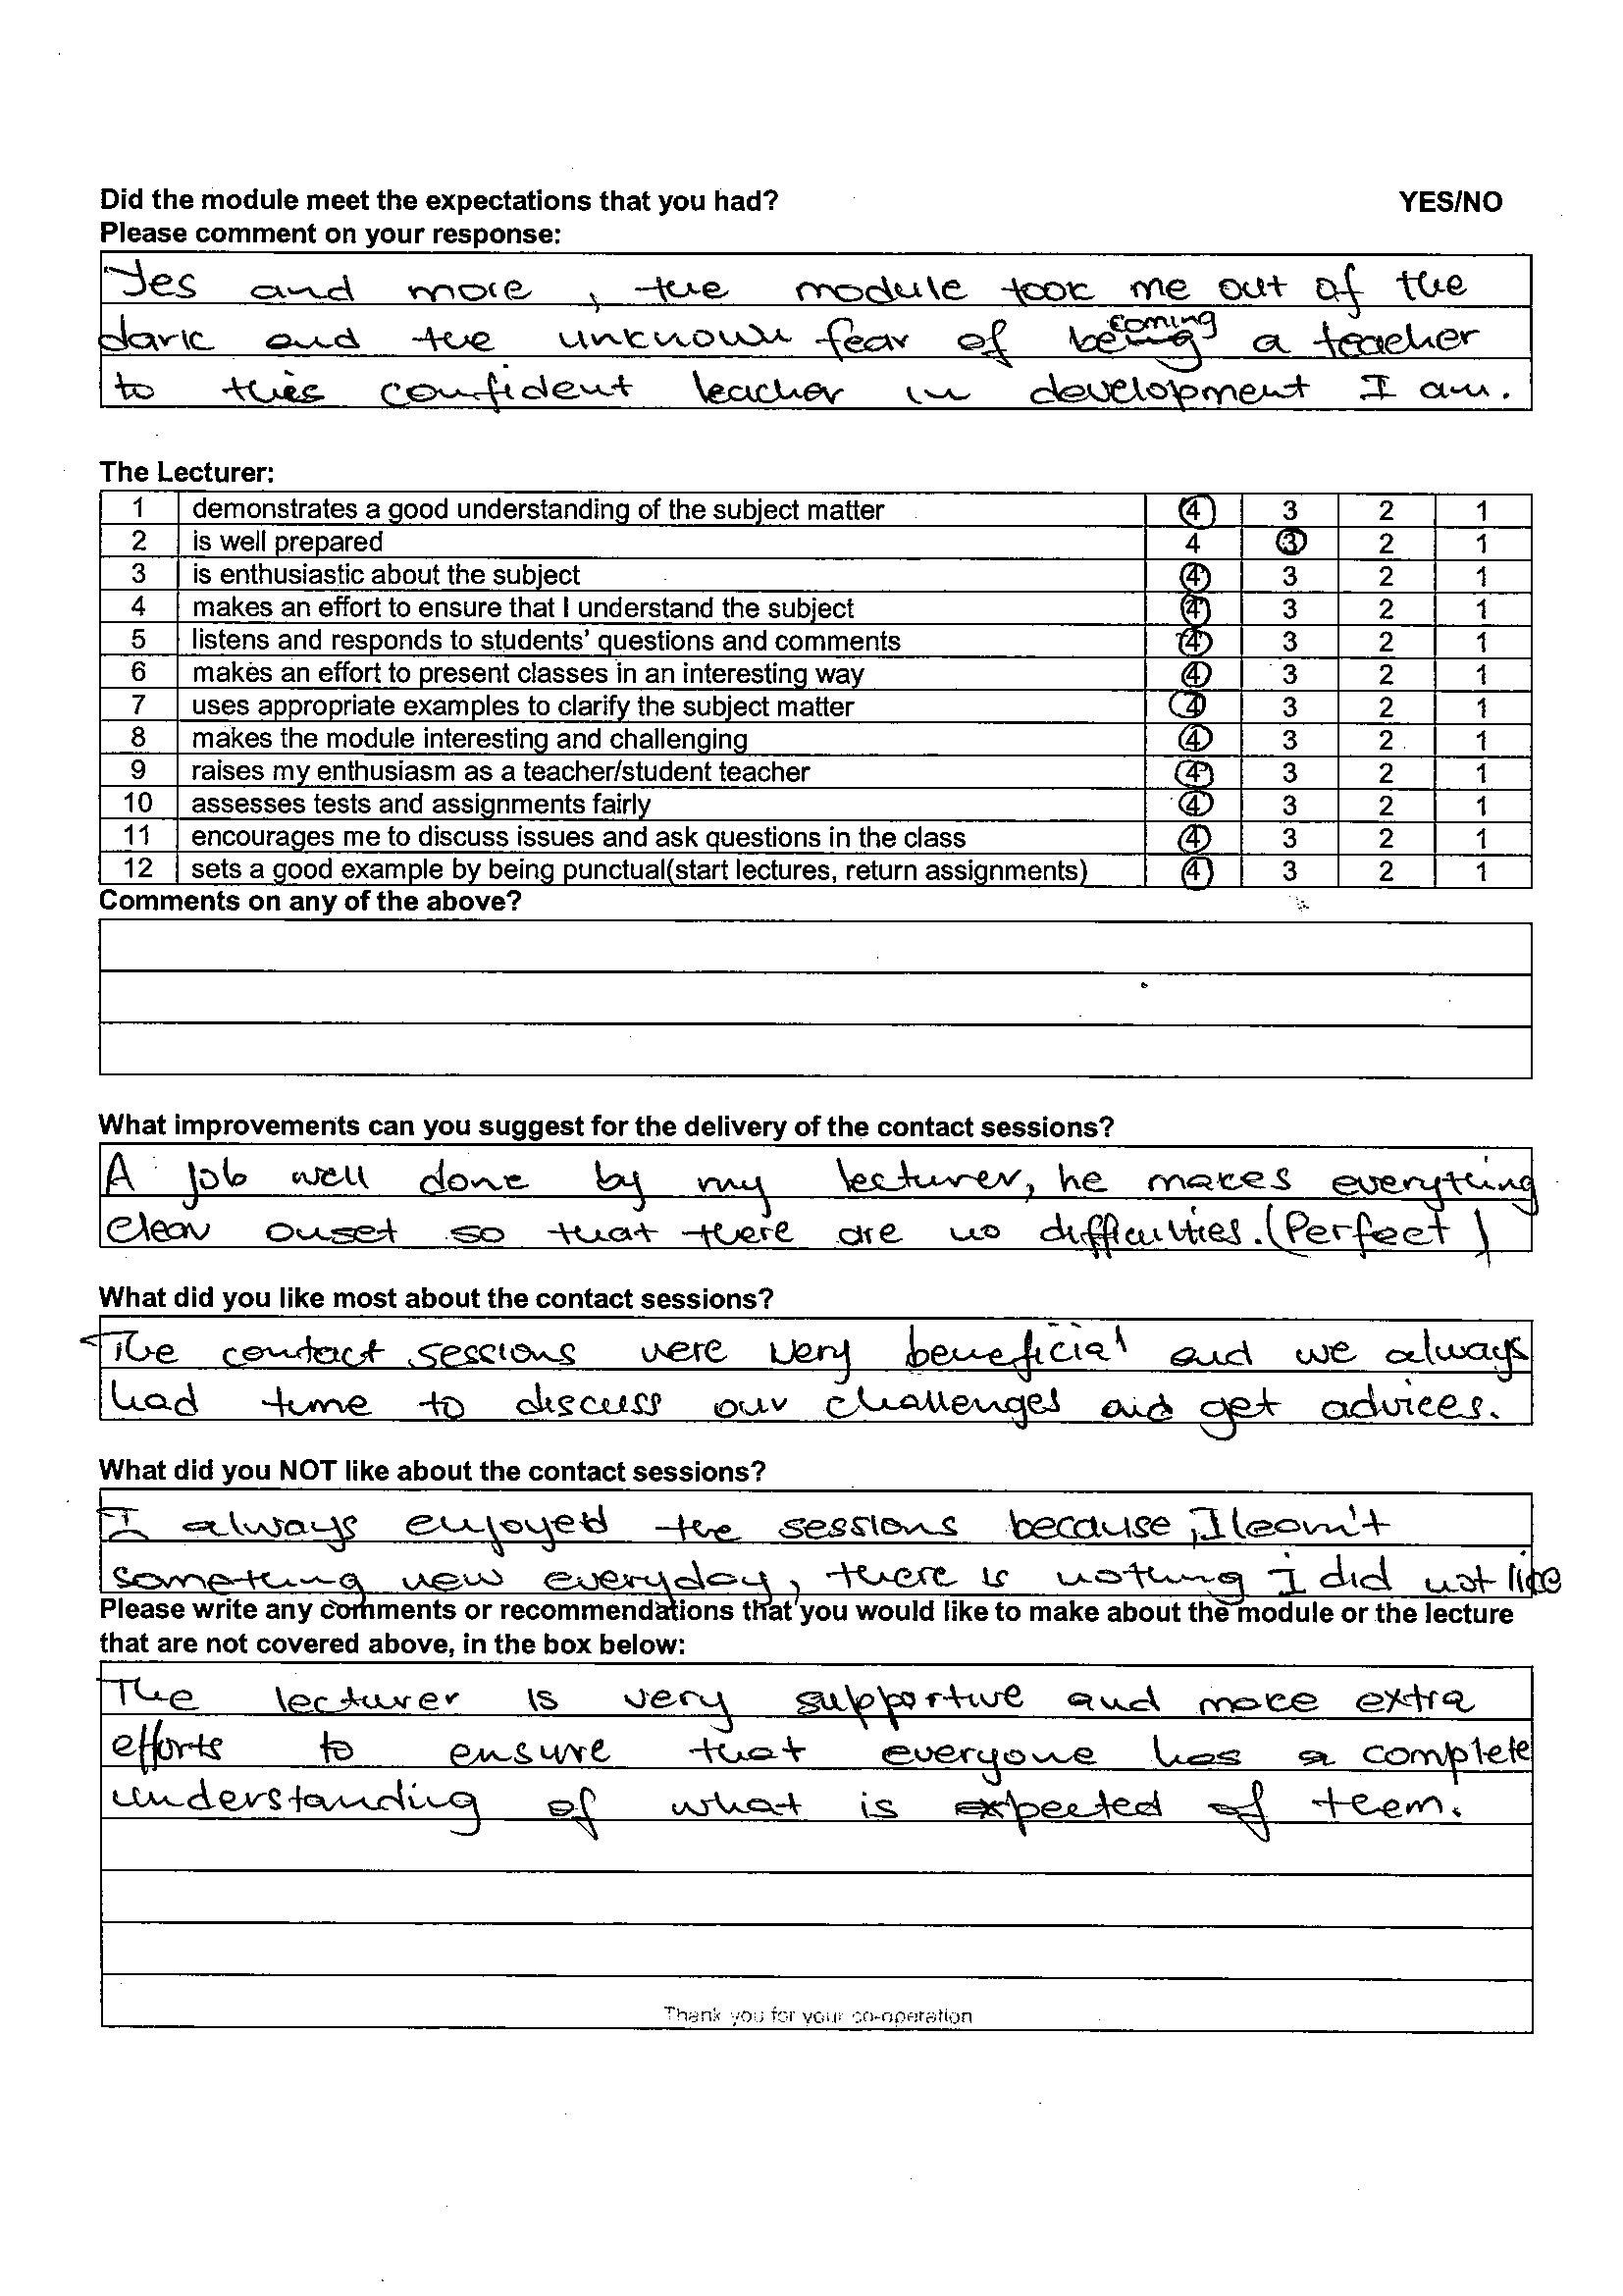 Did the module meet the expectations that you had? YES/NO
Please comment on your response:
Yes and more, the module took me out of the
dark and the unknown fear of becoming a teacher
to this confident teacher in development I am.
The Lecturer:
1 demonstrates a good understanding of the subject matter 4 3 2 1
2 is well prepared 4 3 2 1
3 is enthusiastic about the subject 4 3 2 1
4 makes an effort to ensure that I understand the subject 4 3 2 1
5 listens and responds to students' questions and comments 4 3 2 1
6 makes an effort to present classes in an interesting way 4 3 2 1
7 uses appropriate examples to clarify the subject matter 4 3 2 1
8 makes the module interesting and challenging 4 3 2 1
9 raises my enthusiasm as a teacher/student teacher 4 3 2 1
10 assesses tests and assignments fairly 4 3 2 1
11 encourages me to discuss issues and ask questions in the class 4 3 2 1
12 sets a good example by being punctual(start lectures, return assignments) 4 3 2 1
Comments on any of the above?
What improvements can you suggest for the delivery of the contact sessions?
A job well done by my lecturer, he makes everything
clear onset so that there are no difficulties. (Perfect)
What did you like most about the contact sessions?
The contact sessions were very beneficial and we always
had time to discuss our challenges and get advices.
What did you NOT like about the contact sessions?
I always enjoyed the sessions because, I learn't
something new everyday, there is nothing I did not like
Please write any comments or recommendations that you would like to make about the module or the lecture
that are not covered above, in the box below:
The lecturer is very supportive and make extra
efforts to ensure that everyone has a complete
understanding of what is expected of them.
Thank you for your co-operation